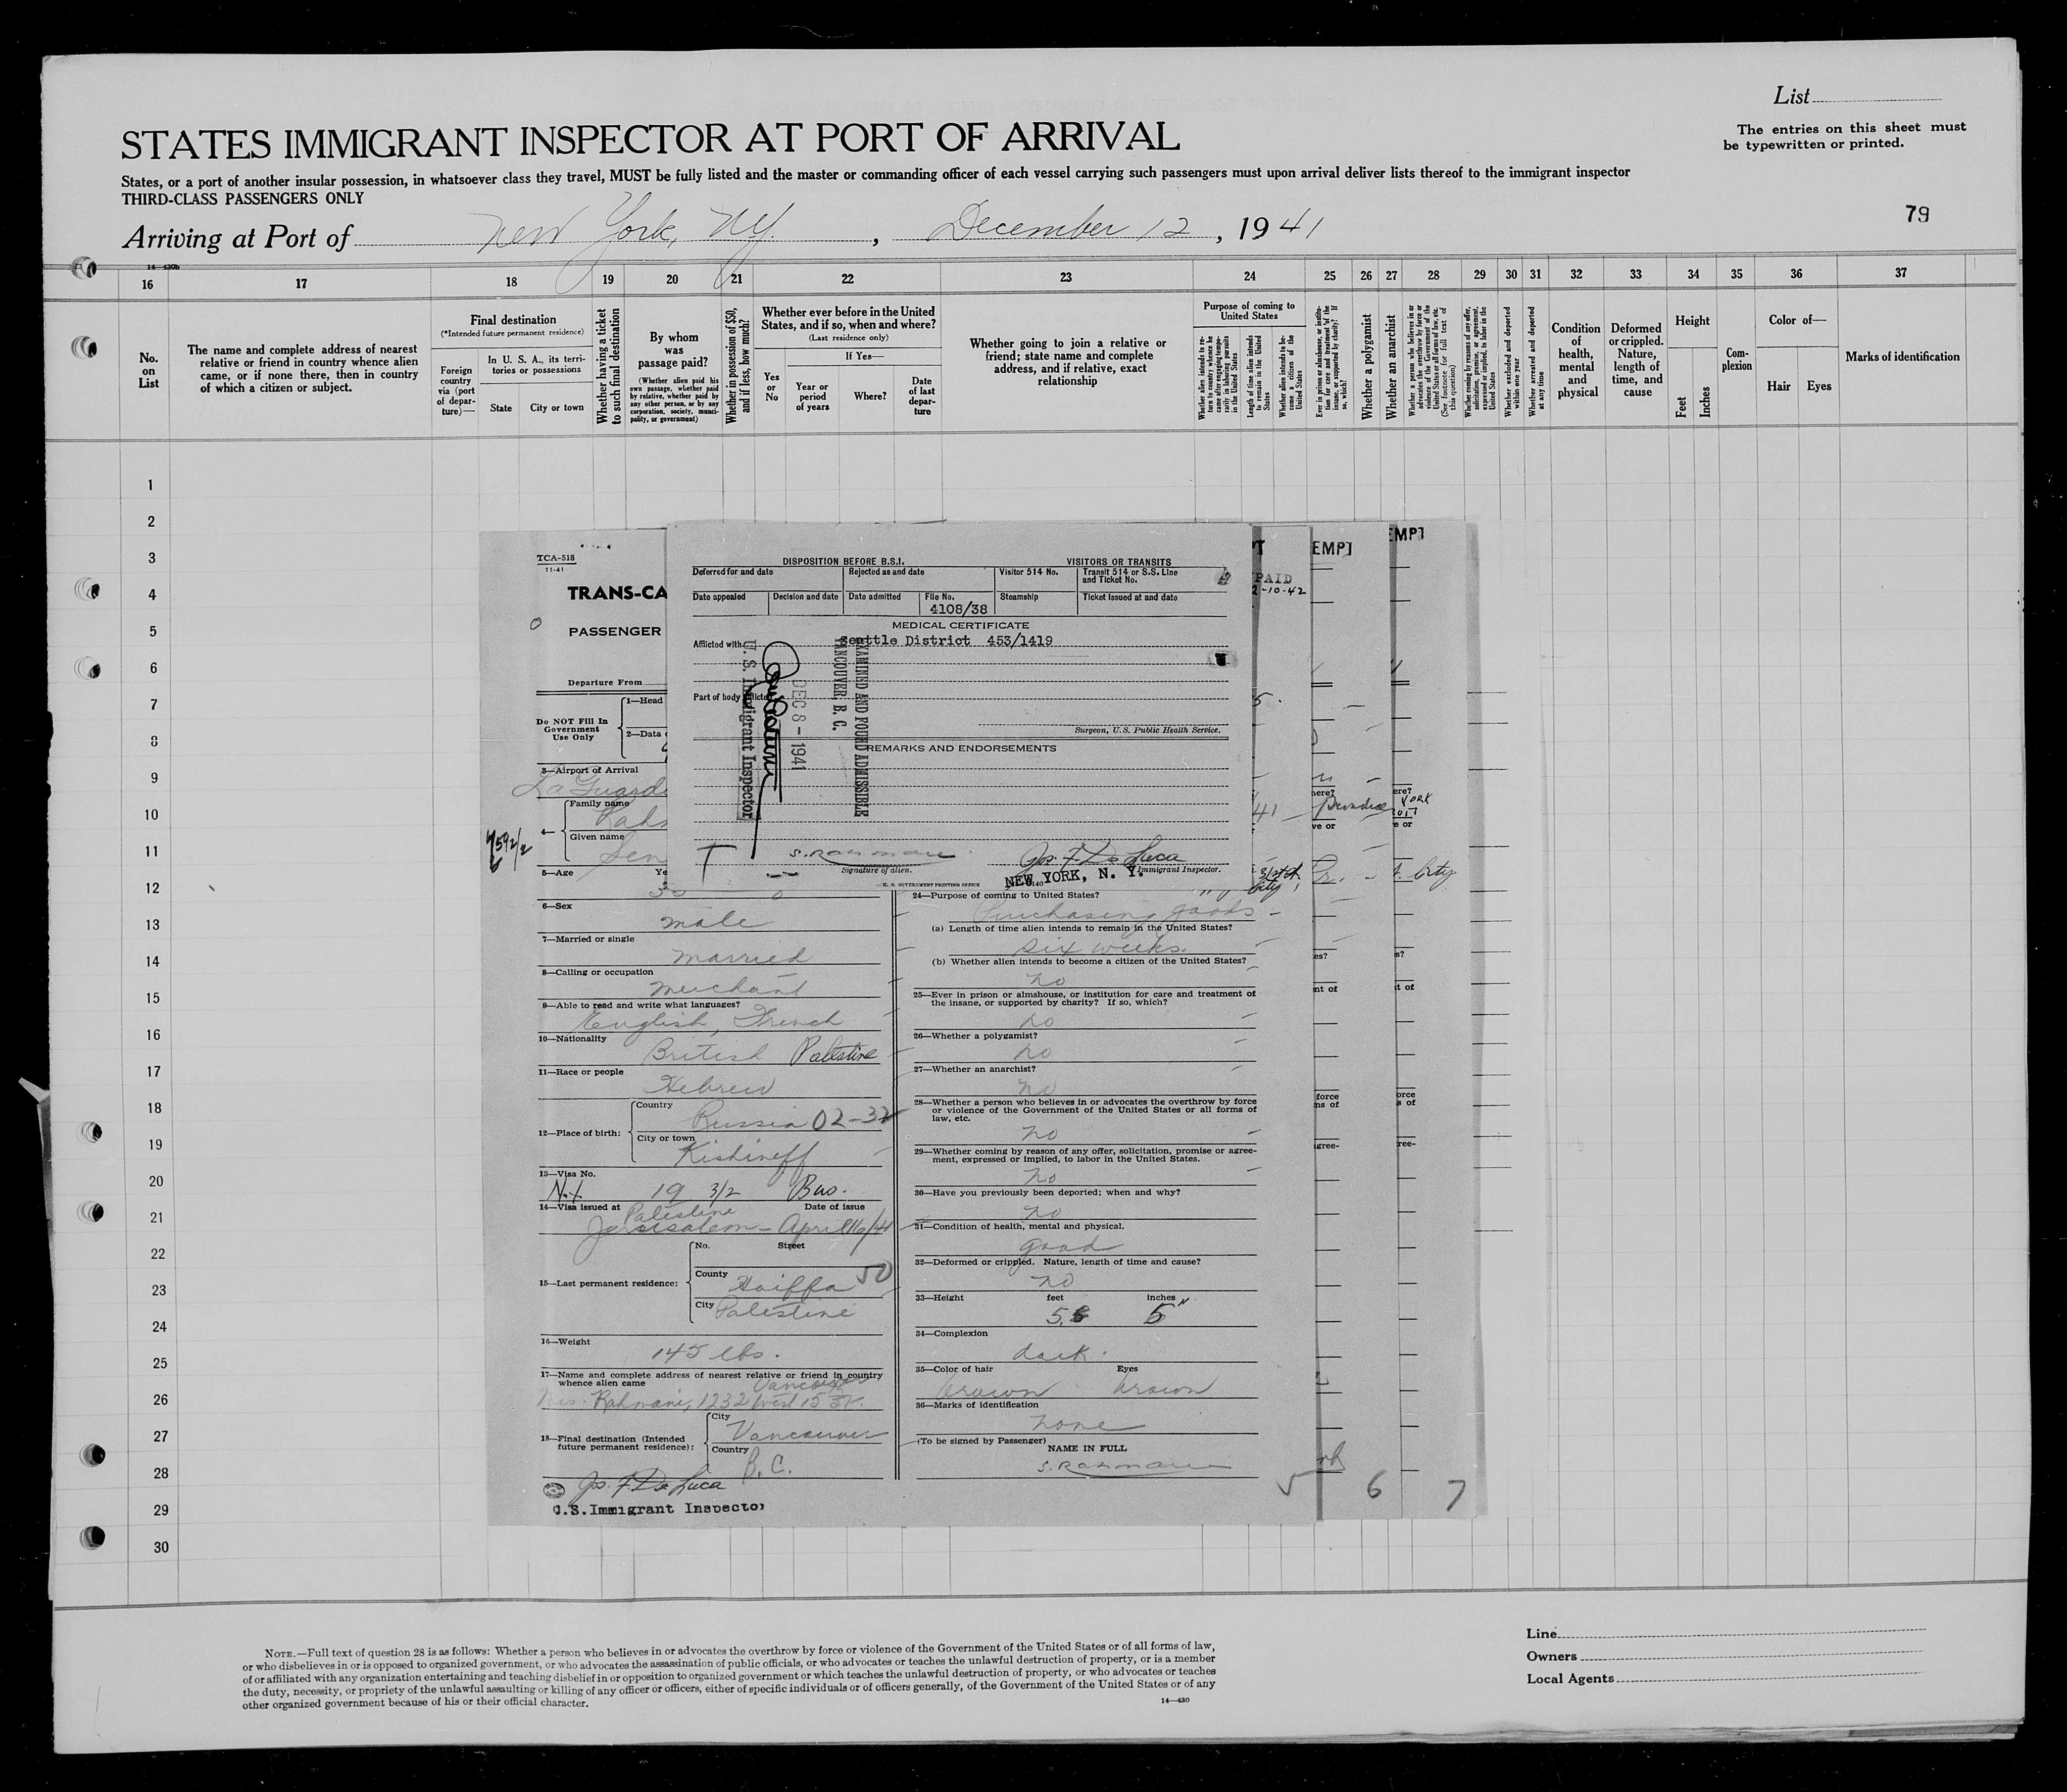 List
The entries on this sheet must
be typewritten or printed.
STATES IMMIGRANT INSPECTOR AT PORT OF ARRIVAL
States, or a port of another insular possession, in whatsoever class they travel, MUST be fully listed and the master or commanding officer of each vessel carrying such passengers must upon arrival deliver lists thereof to the immigrant inspector
THIRD-CLASS PASSENGERS ONLY
79
Arriving at Port of New York, NY. , December 12 , 1941
14-430b
16 17 18 19 20 21 22 23 24 25 26 27 28 29 30 31 32 33 34 35 36 37
No.
on
List
The name and complete address of nearest
relative or friend in country whence alien
came, or if none there, then in country
of which a citizen or subject.
Final destination
(*Intended future permanent residence)
Foreign
country
via (port
of depar-
ture)—
In U. S. A., its terri-
tories or possessions
State City or town
Whether having a ticket
to such final destination
By whom
was
passage paid?
(Whether alien paid his
own passage, whether paid
by relative, whether paid by
any other person, or by any
corporation, society, munici-
pality, or government)
Whether in possession of $50,
and if less, how much?
Whether ever before in the United
States, and if so, when and where?
(Last residence only)
If Yes—
Yes
or
No
Year or
period
of years
Where?
Date
of last
depar-
ture
Whether going to join a relative or
friend; state name and complete
address, and if relative, exact
relationship
Purpose of coming to
United States
Whether alien intends to re-
turn to country whence he
came after engaging tempo-
rarily in laboring pursuits
in the United States
Length of time alien intends
to remain in the United
States
Whether alien intends to be-
come a citizen of the
United States
Ever in prison or almshouse, or institu-
tion for care and treatment of the
insane, or supported by charity? If
so, which?
Whether a polygamist
Whether an anarchist
Whether a person who believes in or
advocates the overthrow by force or
violence of the Government of the
United States or all forms of law, etc.
(See footnote for full text of
this question)
Whether coming by reasons of any offer,
solicitation, promise, or agreement,
expressed or implied, to labor in the
United States
Whether excluded and deported
within one year
Whether arrested and deported
at any time
Condition
of
health,
mental
and
physical
Deformed
or crippled.
Nature,
length of
time, and
cause
Height
Feet
Inches
Com-
plexion
Color of—
Hair Eyes
Marks of identification
1
2
3
4
5
6
7
8
9
10
11
12
13
14
15
16
17
18
19
20
21
22
23
24
25
26
27
28
29
30
TCA-518
11-41
TRANS-CA
PASSENGER
Departure From
Do NOT Fill In
Government
Use Only
1—Head
2—Data
3—Airport of Arrival
La Guard
Family name
Rah
4—
Given name
Sen
5—Age Ye
6—Sex
male
7—Married or single
married
8—Calling or occupation
merchant
9—Able to read and write what languages?
English, French
10—Nationality
British Palestine
11—Race or people
Hebrew
12—Place of birth:
Country
Russia 02-32
City or town
Kishineff
13—Visa No.
19 3/2 Bus.
14—Visa issued at Date of issue
Palestine
Jerusalem - April 16/41
15—Last permanent residence:
No. Street
County
Haiffa 50
City
Palestine
16—Weight
145 lbs.
17—Name and complete address of nearest relative or friend in country
whence alien came
Vancouver
Mrs. Rahmani, 1232 West 15 St.
18—Final destination (Intended
future permanent residence):
City
Vancouver
Country
B.C.
Jos. F. De Luca
U.S. Immigrant Inspector
DISPOSITION BEFORE B.S.I. VISITORS OR TRANSITS
Deferred for and date Rejected as and date Visitor 514 No. Transit 514 or S.S. Line
and Ticket No.
Date appealed Decision and date Date admitted File No. Steamship Ticket issued at and date
4108/38
MEDICAL CERTIFICATE
Afflicted with
Seattle District 453/1419
Part of body afflicted
Surgeon, U.S. Public Health Service.
EXAMINED AND FOUND ADMISSIBLE
VANCOUVER, B. C.
DEC 8 - 1941
U. S. Immigrant Inspector
REMARKS AND ENDORSEMENTS
S. Rahmani
Signature of alien.
Jos. F. De Luca
Immigrant Inspector.
U. S. GOVERNMENT PRINTING OFFICE
NEW YORK, N. Y.
24—Purpose of coming to United States?
Purchasing goods
(a) Length of time alien intends to remain in the United States?
six weeks
(b) Whether alien intends to become a citizen of the United States?
no
25—Ever in prison or almshouse, or institution for care and treatment of
the insane, or supported by charity? If so, which?
no
26—Whether a polygamist?
no
27—Whether an anarchist?
no
28—Whether a person who believes in or advocates the overthrow by force
or violence of the Government of the United States or all forms of
law, etc.
no
29—Whether coming by reason of any offer, solicitation, promise or agree-
ment, expressed or implied, to labor in the United States.
no
30—Have you previously been deported; when and why?
no
31—Condition of health, mental and physical.
good
32—Deformed or crippled. Nature, length of time and cause?
no
33—Height feet inches
5 5"
34—Complexion
dark.
35—Color of hair Eyes
brown brown
36—Marks of identification
none
(To be signed by Passenger)
NAME IN FULL
S. Rahmani
PAID
2-10-42
EMPT
EMPT
5 6 7
NOTE.—Full text of question 28 is as follows: Whether a person who believes in or advocates the overthrow by force or violence of the Government of the United States or of all forms of law,
or who disbelieves in or is opposed to organized government, or who advocates the assassination of public officials, or who advocates or teaches the unlawful destruction of property, or is a member
of or affiliated with any organization entertaining and teaching disbelief in or opposition to organized government or which teaches the unlawful destruction of property, or who advocates or teaches
the duty, necessity, or propriety of the unlawful assaulting or killing of any officer or officers, either of specific individuals or of officers generally, of the Government of the United States or of any
other organized government because of his or their official character.
14-430
Line
Owners
Local Agents